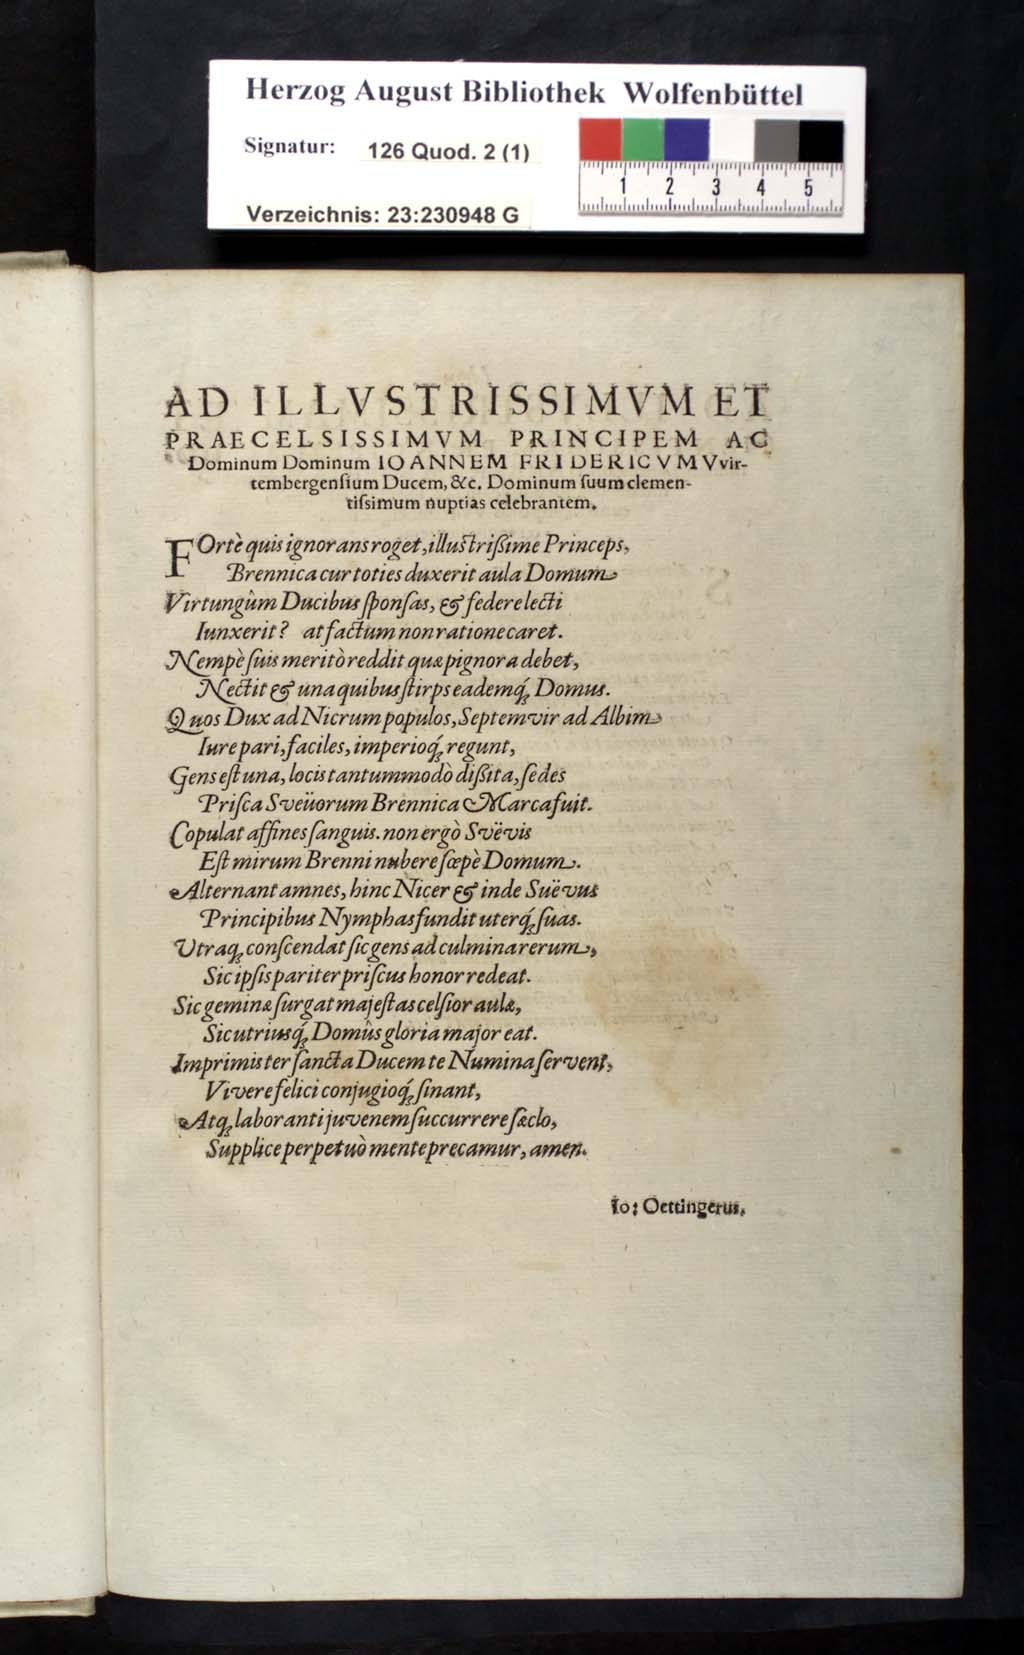 Herzog August Bibliothek Wolfenbüttel
Signatur: 126 Quod. 2 (1)
Verzeichnis: 23:230948 G
1 2 3 4 5
AD ILLVSTRISSIMVM ET
PRAECELSISSIMVM PRINCIPEM AC
Dominum Dominum IOANNEM FRIDERICVM Vvir-
tembergensium Ducem, &c. Dominum suum clemen-
tissimum nuptias celebrantem.
FOrtè quis ignorans roget, illustrißime Princeps,
Brennica cur toties duxerit aula Domum
Virtungûm Ducibus sponsas, & federe lecti
Iunxerit? at factum non ratione caret.
Nempè suis meritò reddit quæ pignora debet,
Nectit & una quibus stirps eademq́; Domus.
Quos Dux ad Nicrum populos, Septemvir ad Albim
Iure pari, faciles, imperioq́; regunt,
Gens est una, locis tantummodò dißita, sedes
Prisca Sveüorum Brennica Marca fuit.
Copulat affines sanguis. non ergò Svëvis
Est mirum Brenni nubere sœpè Domum.
Alternant amnes, hinc Nicer & inde Suëvus
Principibus Nymphas fundit uterq́; suas.
Utraq; conscendat sic gens ad culmina rerum,
Sic ipsis pariter priscus honor redeat.
Sic geminæ surgat majestas celsior aulæ,
Sic utriusq́; Domûs gloria major eat.
Imprimis ter sancta Ducem te Numina servent,
Vivere felici conjugioq́; sinant,
Atq; laboranti juvenem succurrere sæclo,
Supplice perpetuò mente precamur, amen.
Io: Oettingerus.